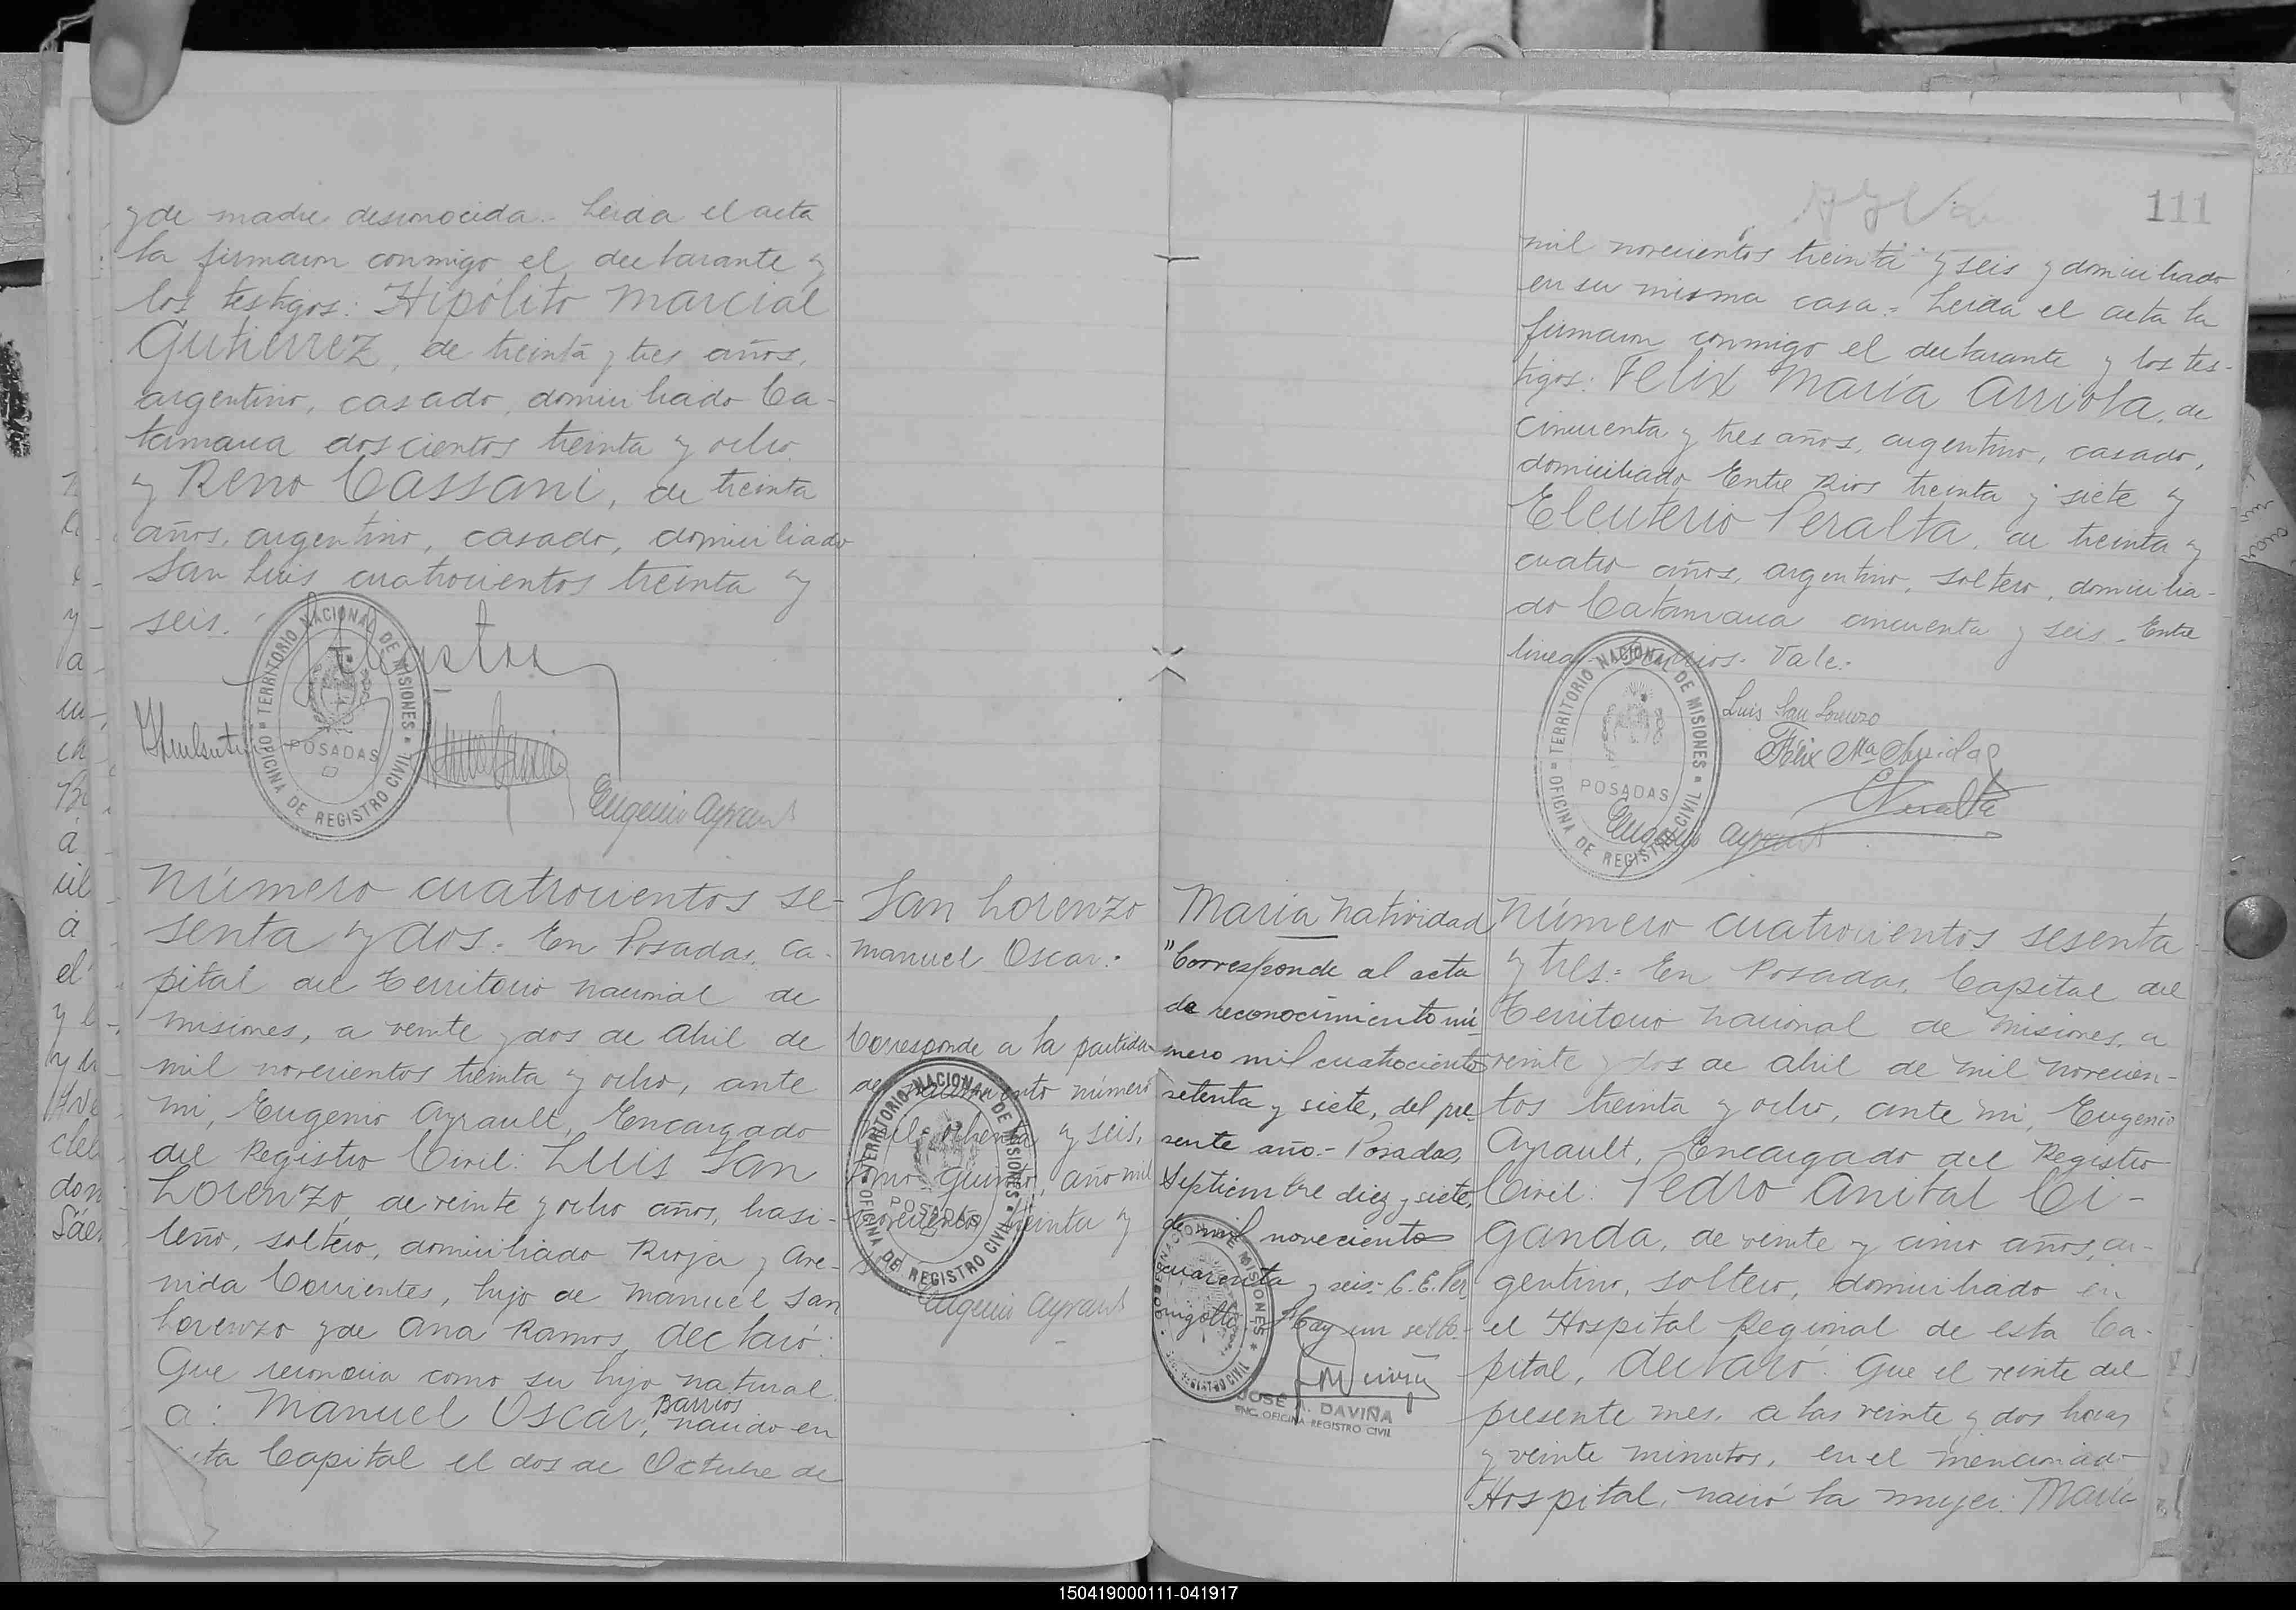 y de madre desconocida.- Leida el acta
la firmaron conmigo el declarante y
los testigos: Hipólito Marcial
Gutierrez, de treinta y tres años,
argentino, casado, domiciliado Ca-
tamarca doscientos treinta y ocho
y Reno Cassani, de treinta
años, argentino, casado, domiciliado
San Luis cuatrocientos treinta y
seis.
TERRITORIO NACIONAL DE MISIONES
POSADAS
OFICINA DE REGISTRO CIVIL
Eugenio Ayrault
Número cuatrocientos se-
senta y dos.- En Posadas, Ca-
pital del Territorio Nacional de
Misiones, a veinte y dos de Abril de
mil novecientos treinta y ocho, ante
mi, Eugenio Ayrault, Encargado
del Registro Civil: Luis San
Lorenzo de veinte y ocho años, brasi-
leño, soltero, domiciliado Rioja y Ave-
nida Corrientes, hijo de Manuel San
Lorenzo y de Ana Ramos, declaró:
Que reconocia como su hijo natural
a: Manuel Oscar, Barrios nacido en
esta Capital el dos de Octubre de
San Lorenzo
Manuel Oscar.-
Corresponde a la partida
de nacimiento número
mil ochenta y seis,
tomo quinto, año mil
novecientos treinta y
TERRITORIO NACIONAL DE MISIONES
POSADAS
OFICINA DE REGISTRO CIVIL
Eugenio Ayrault
111
mil novecientos treinta y seis y domiciliado
en su misma casa.- Leida el acta la
firmaron conmigo el declarante y los tes-
tigos: Felix Maria Arriola, de
cincuenta y tres años, argentino, casado,
domiciliado Entre Rios treinta y siete y
Eleuterio Peralta, de treinta y
cuatro años, argentino, soltero, domicilia-
do Catamarca cincuenta y seis. Entre
lineas- Barrios- Vale.-
TERRITORIO NACIONAL DE MISIONES
POSADAS
OFICINA DE REGISTRO CIVIL
Luis San Lorenzo
Félix Ma Arriola
EPeralta
Eugenio Ayrault
María Natividad
"Corresponde al acta
de reconocimiento nú-
mero mil cuatrocientos
setenta y siete, del pre-
sente año.- Posadas,
Septiembre diez y siete,
de mil novecientos
cuarenta y seis.- C. E. Per
migotti Hay un sello.-
JOSE A. DAVIÑA
ENC. OFICINA REGISTRO CIVIL
Número cuatrocientos sesenta
y tres.- En Posadas, Capital del
Territorio Nacional de Misiones, a
veinte y dos de Abril de mil novecien-
tos treinta y ocho, ante mi, Eugenio
Ayrault, Encargado del Registro
Civil: Pedro Anibal Ci-
ganda, de veinte y cinco años, ar-
gentino, soltero, domiciliado en
el Hospital Regional de esta Ca-
pital, declaró: Que el veinte del
presente mes, a las veinte y dos horas
y veinte minutos, en el mencionado
Hospital, nació la mujer: María
150419000111-041917